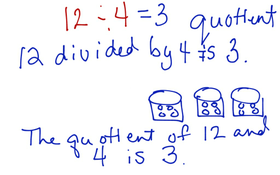 12 ÷ 4 = 3 quotient
12 divided by 4 is 3.
The quotient of 12 and
4 is 3.